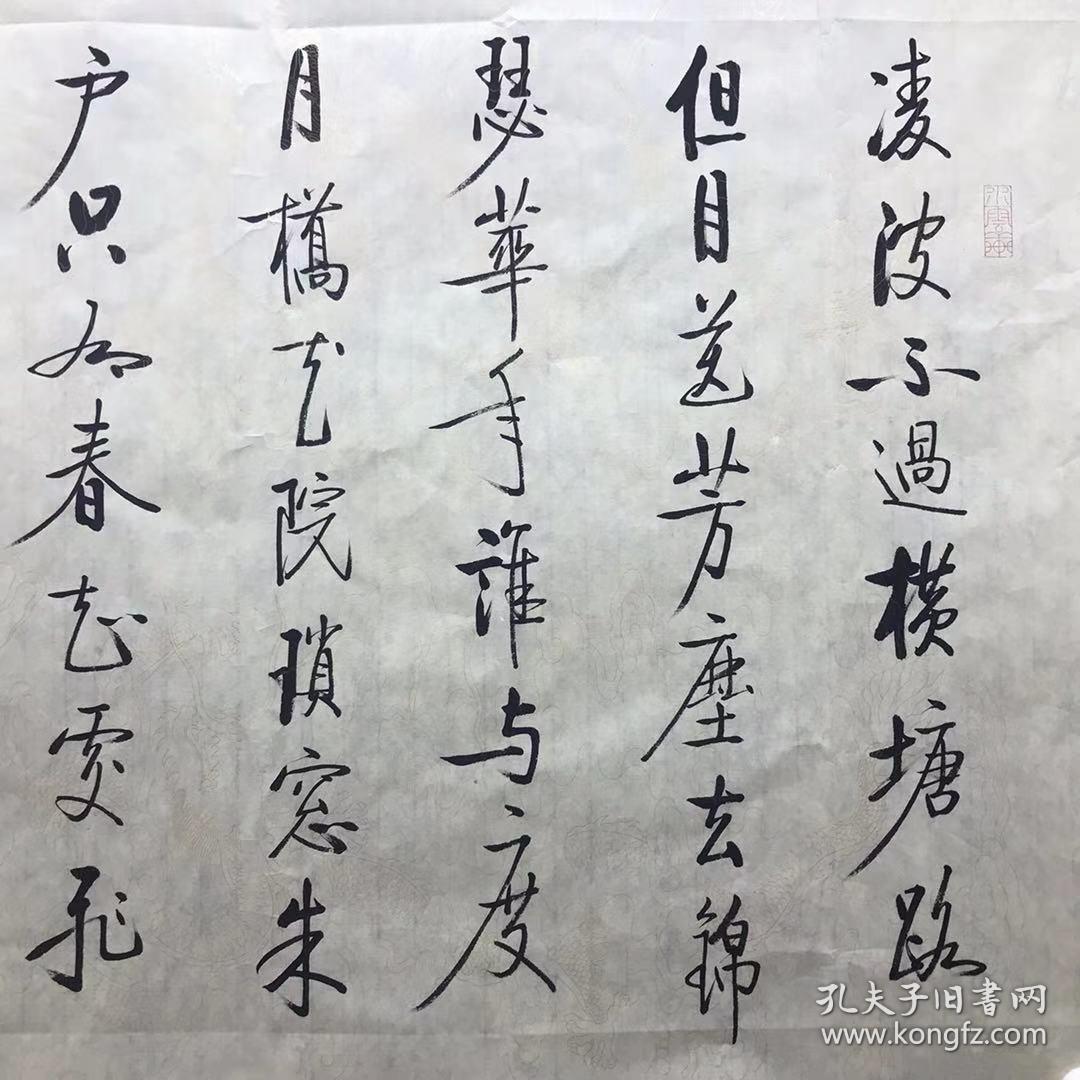 凌波不過横塘路
但目送芳塵去錦
瑟華年誰与度
月橋花院瑣窓朱
户只有春知處飛
孔夫子旧書网
www.kongfz.com